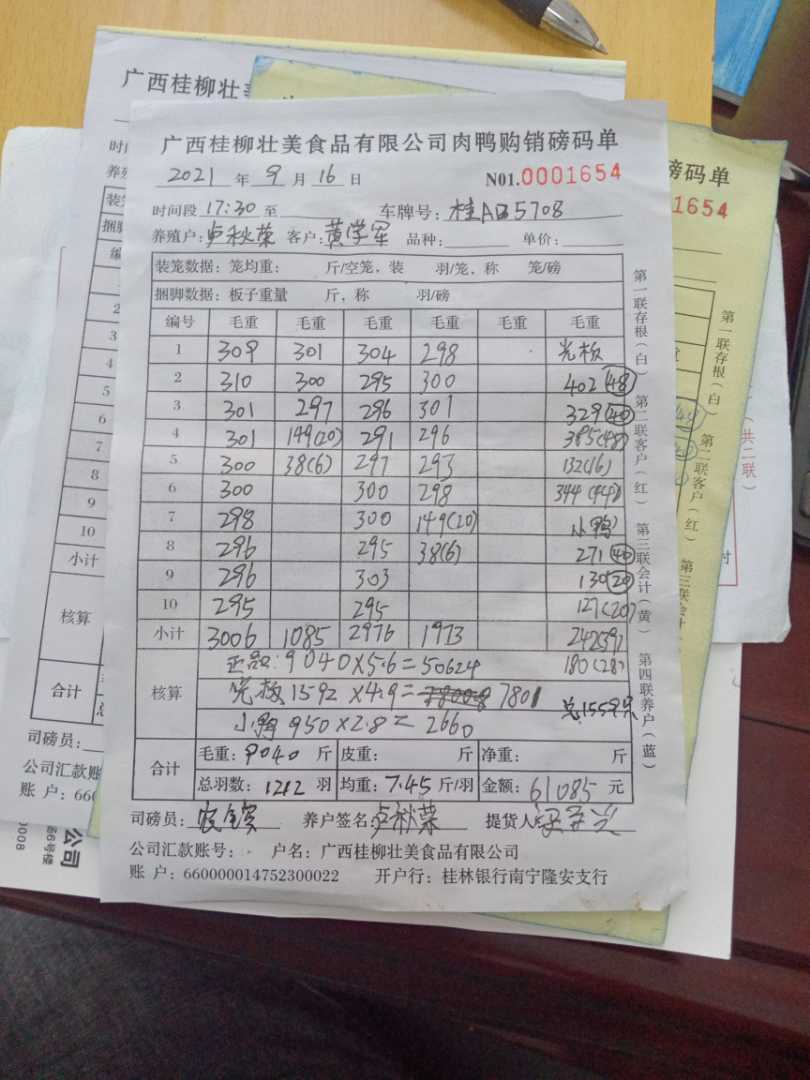 广西桂柳壮美食品有限公司肉鸭购销磅码单
2021 年 9 月 16 日 N01.0001654
时间段 17:30 至 车牌号: 桂AB5708
养殖户: 卢秋荣 客户: 黄学军 品种: 单价:
装笼数据: 笼均重: 斤/空笼，装 羽/笼，称 笼/磅
捆脚数据: 板子重量 斤，称 羽/磅
编号 毛重 毛重 毛重 毛重 毛重 毛重
1 309 301 304 298 光板
2 310 300 295 300 402(48)
3 301 297 296 301 329(40)
4 301 149(20) 291 296 385(48)
5 300 38(6) 297 293 132(16)
6 300 300 298 344(44)
7 298 300 149(20) 小鸭
8 296 295 38(6) 271(40)
9 296 303 130(20)
10 295 295 127(20)
小计 3006 1085 2976 1973 242(59)
180(28)
核算
正品: 9040×5.6=50624
光板 1592×4.9= 7801
小鸭 950×2.8=2660
总1559只
合计
毛重: 9040 斤 皮重: 斤 净重: 斤
总羽数: 1212 羽 均重: 7.45 斤/羽 金额: 61085 元
司磅员: 养户签名: 卢秋荣 提货人:
公司汇款账号: 户名: 广西桂柳壮美食品有限公司
账 户: 660000014752300022 开户行: 桂林银行南宁隆安支行
第一联存根(白)
第二联客户(红)
第三联会计(黄)
第四联养户(蓝)
广西桂柳壮美
时间
养殖
装笼
捆脚
编
1
2
3
4
5
6
7
8
9
10
小计
核算
合计
司磅员:
公司汇款账
账 户: 660
磅码单
1654
第一联存根(白)
第二联客户(红)
第三联会计(黄)
(共二联)
公司
6号楼
0008